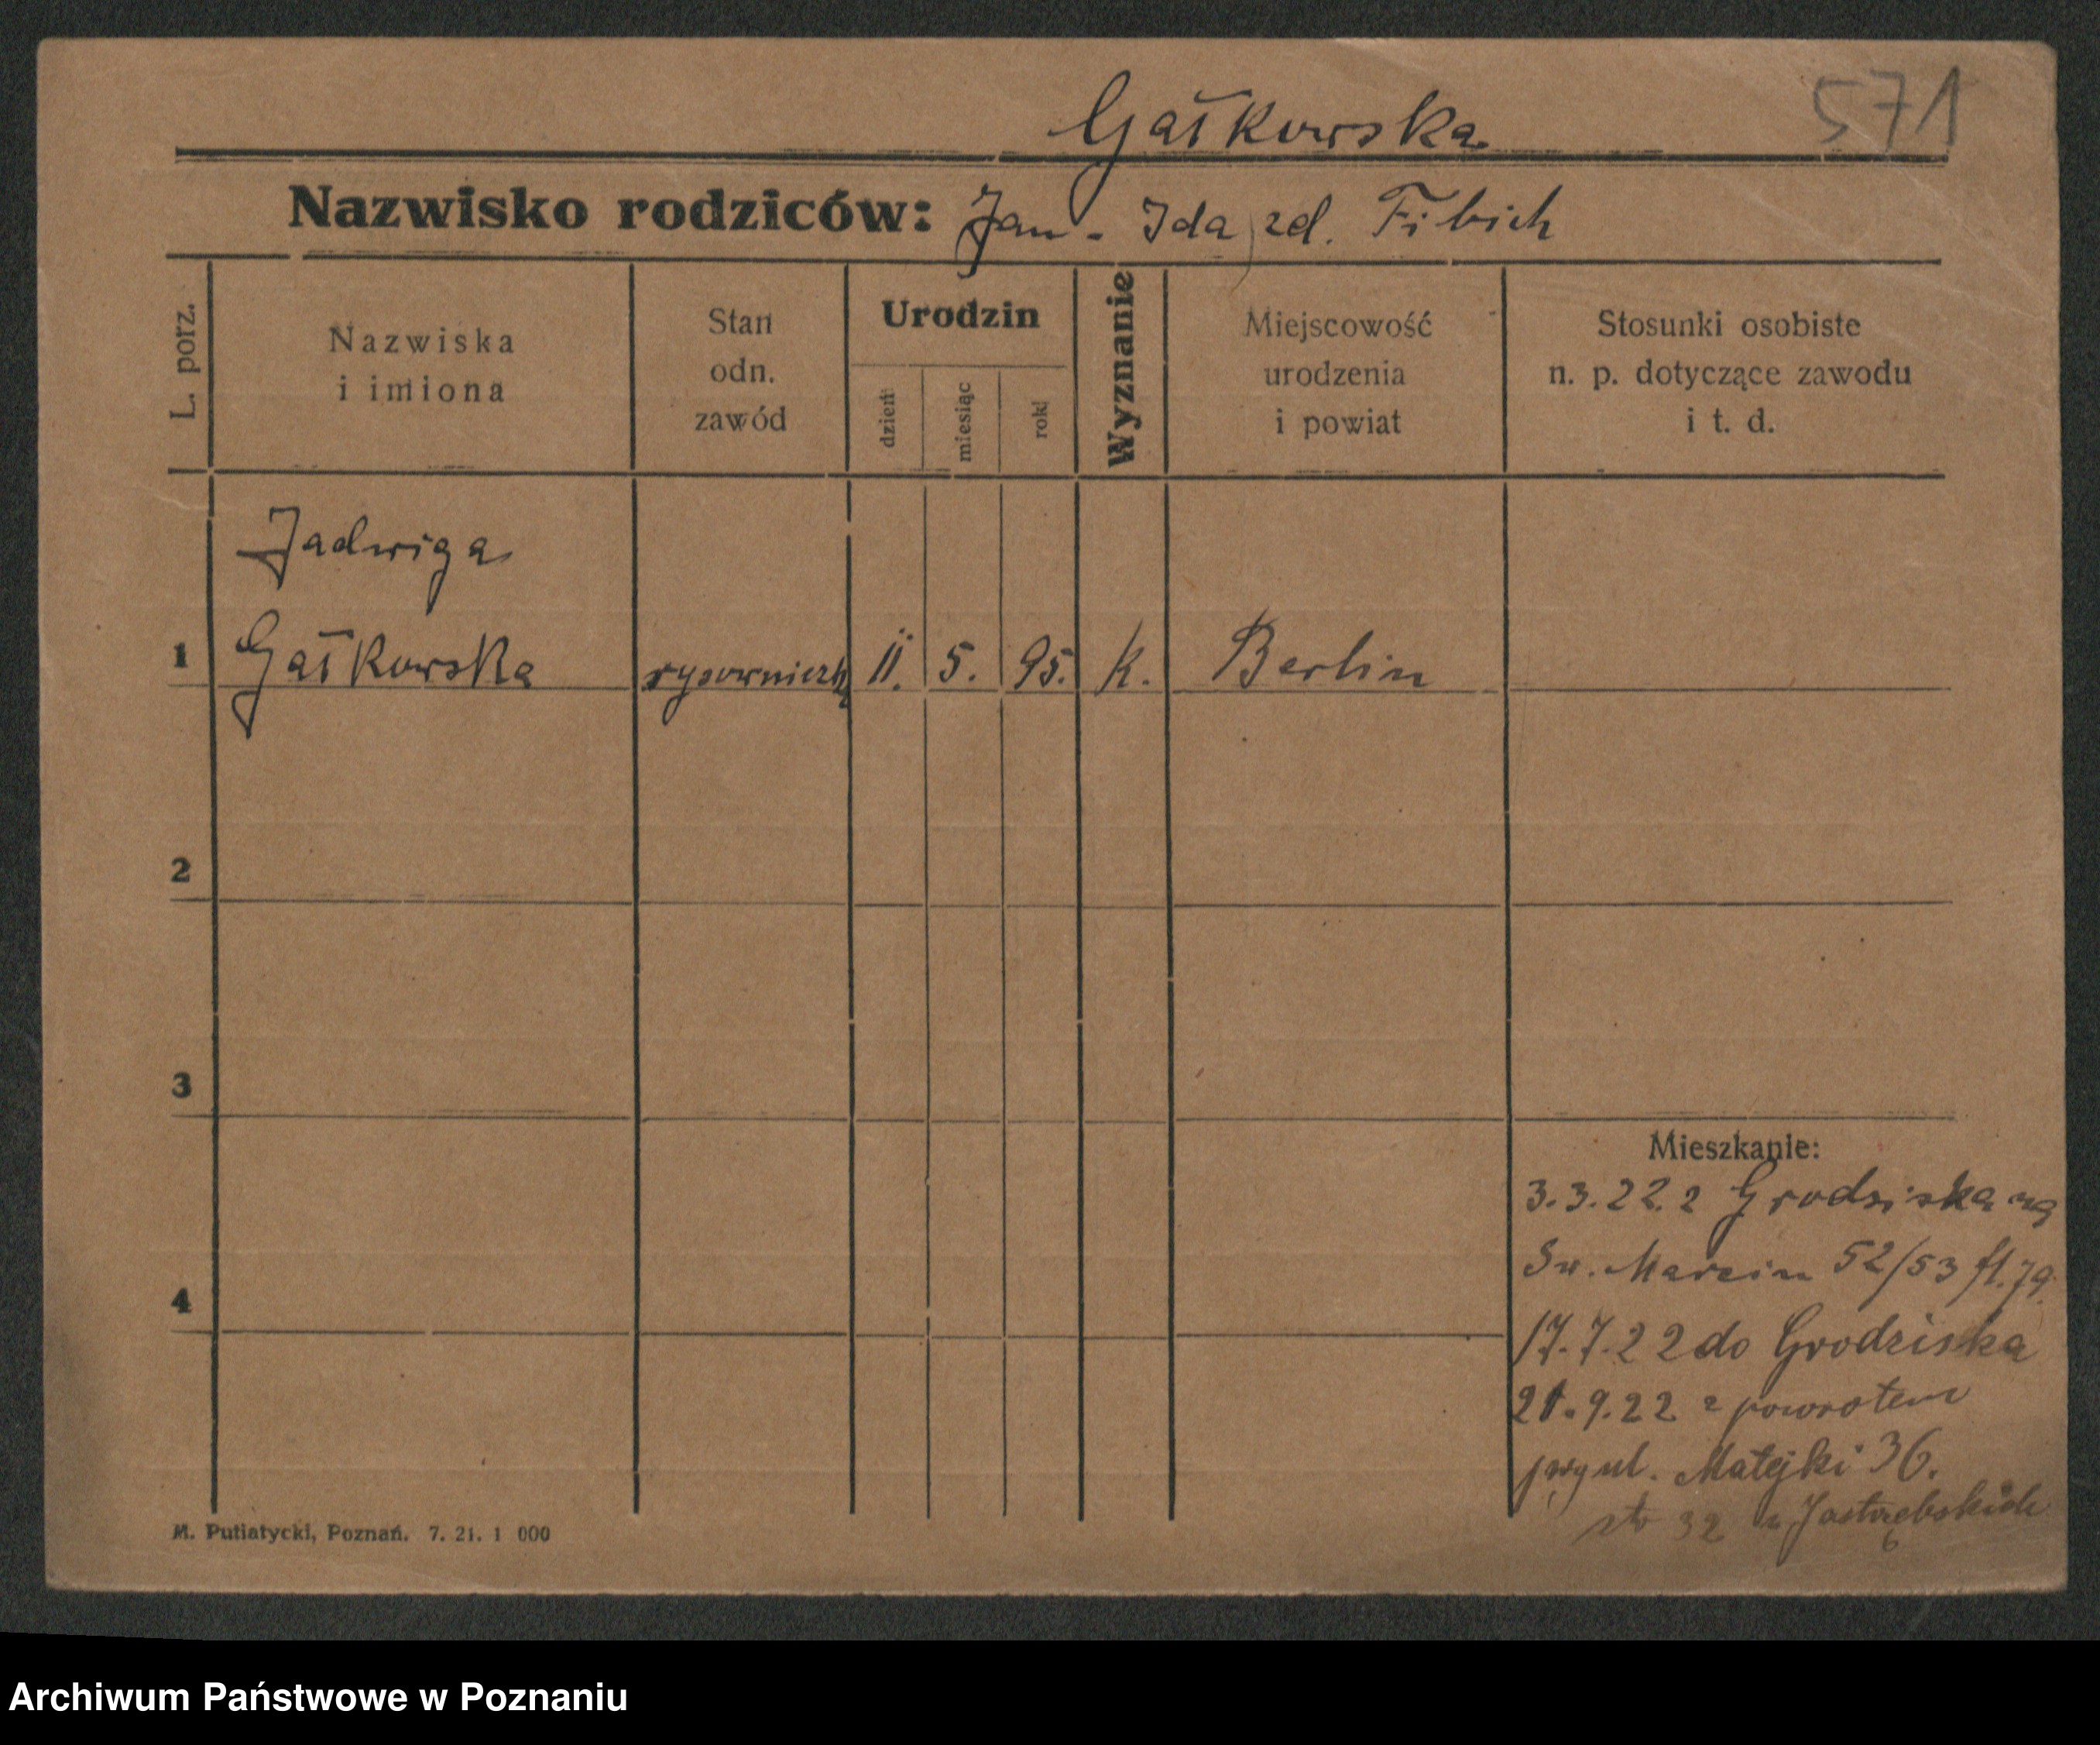 571
Gałkowska
Nazwisko rodziców: Jan - Ida zd. Fibich
L. porz.
Nazwiska
i imiona
Stan
odn.
zawód
Urodzin
dzień
miesiąc
rok
Wyznanie
Miejscowość
urodzenia
i powiat
Stosunki osobiste
n. p. dotyczące zawodu
i t. d.
Jadwiga
1 Gałkowska 11. 5. 95. k. Berlin
2
3
Mieszkanie:
3.3.22. z Grodziska na
Św. Marcin 52/53
4
17.7.22 do Grodziska
21.9.22 z powrotem
ul. Matejki 36.
32 u Jastrzębskich
M. Putiatycki, Poznań. 7. 21. 1 000
Archiwum Państwowe w Poznaniu